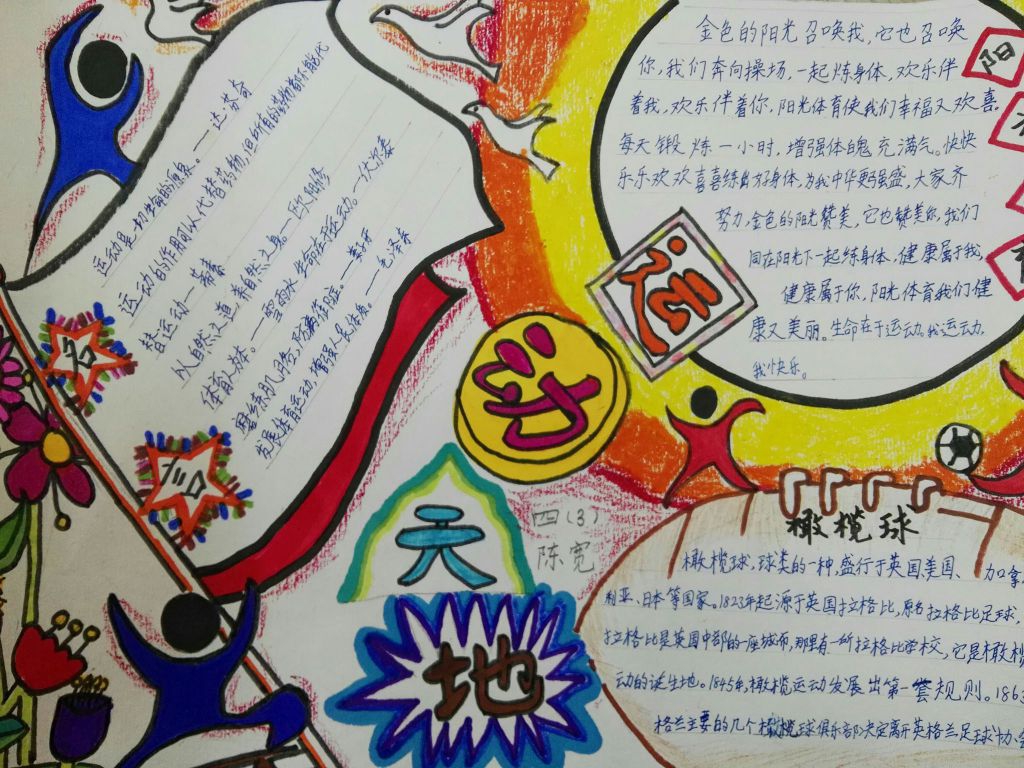 运动是一切生命的源泉。——达芬奇
运动的作用可以代替药物,但所有的药物都不能代
替运动——蒂素
以自然之道,养自然之身。——欧阳修
生命在于运动。—伏尔泰
发展体育运动,增强人民体质。——毛泽东
名
言
运
动
天
地
四(3)
陈宽
金色的阳光召唤我,它也召唤
你,我们奔向操场,一起炼身体,欢乐伴
着我,欢乐伴着你,阳光体育使我们幸福又欢喜。
每天锻炼一小时,增强体魄充满气。快快
乐乐欢欢喜喜练出好身体,为我中华更强盛,大家齐
努力,金色的阳光赞美,它也赞美你,我们
同在阳光下一起练身体、健康属于我,
健康属于你,阳光体育我们健
康又美丽。生命在于运动,我运动,
我快乐。
阳
育
橄榄球
橄榄球,球类的一种,盛行于英国、美国、加拿
利亚、日本等国家。1823年起源于英国拉格比,原名拉格比足球,
拉格比是英国中部的一座城市,那里有一所拉格比学校,它是橄榄
动的诞生地。1845年,橄榄运动发展出第一套规则。186
格兰主要的几个橄榄球俱乐部决定离开英格兰足球协会